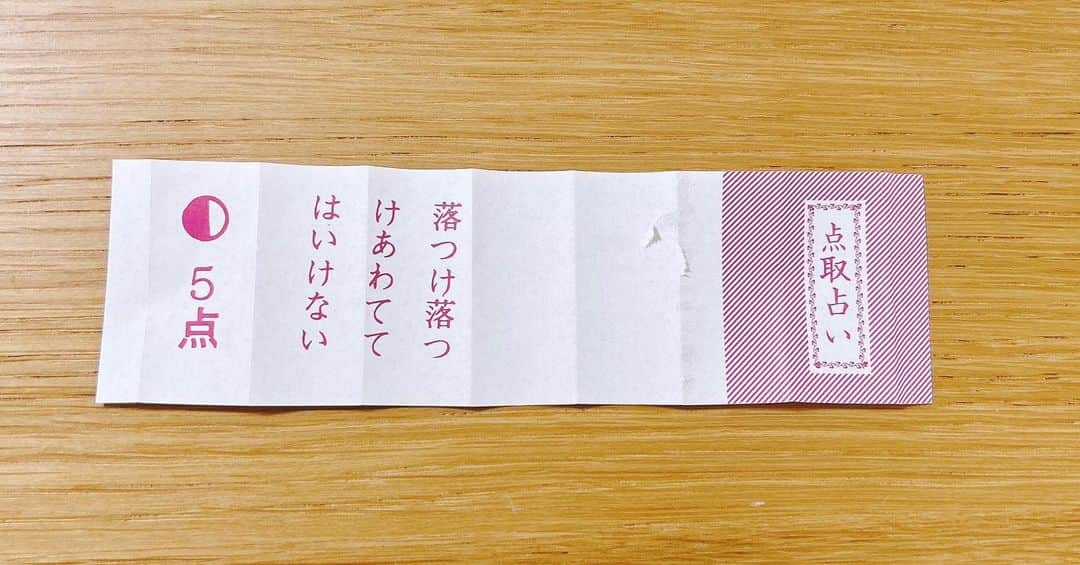 点取占い
落つけ落つ
けあわてて
はいけない
5点